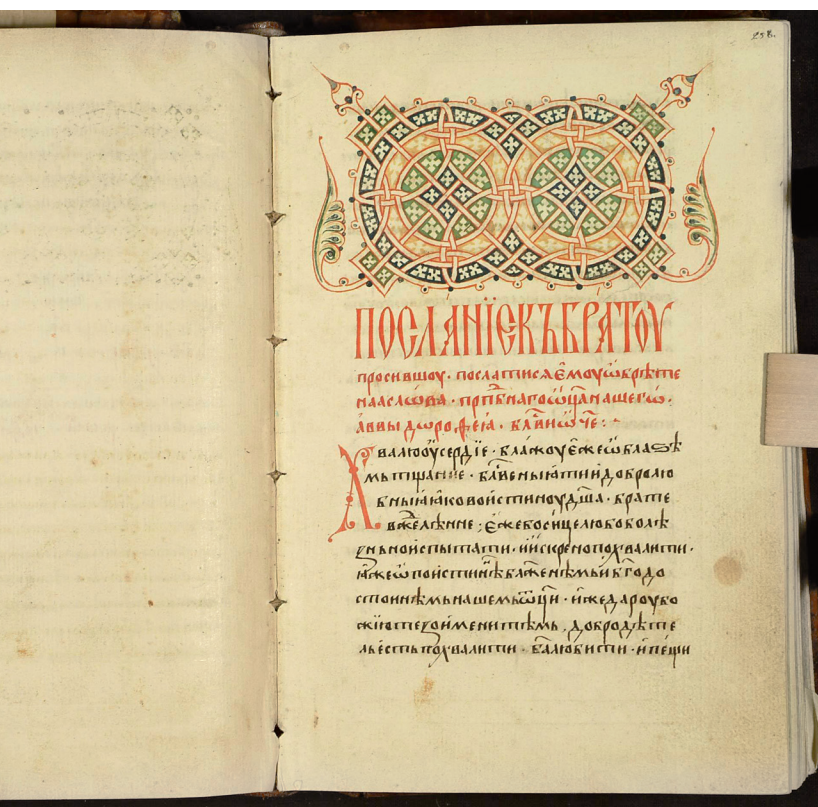 258.
ПОСЛАНЇЕКЪБРАТОУ
просившоу · послатисѧ є҆моуѡ҆брѣте
наꙗсло́ва · прпⷣбнагоѡ҆ц҃анашегѡ̀ ·
а҆ввы дѡроѳеꙗ · бл҃вио҆ч҃е :·
Хвалюоу҆сердїе · блажоує҆жеѡ҆блаѕѣ
мьтщанїе · бл҃веныꙗ
вжⷣелѣнне ; є҆жебосицелюбоболѣ
ꙁньноиспытати · ии҆скренопохвалити ·
ꙗ҆жеѡ҆поистинѣблаженѣмьиб҃годо
стоинѣмьнашемьѡ҆ц҃и · и҆жедароубо
жїютеꙁоименитѣмь . добродѣте
льестьпохвалити · бл҃алюбисти · и҆пещи